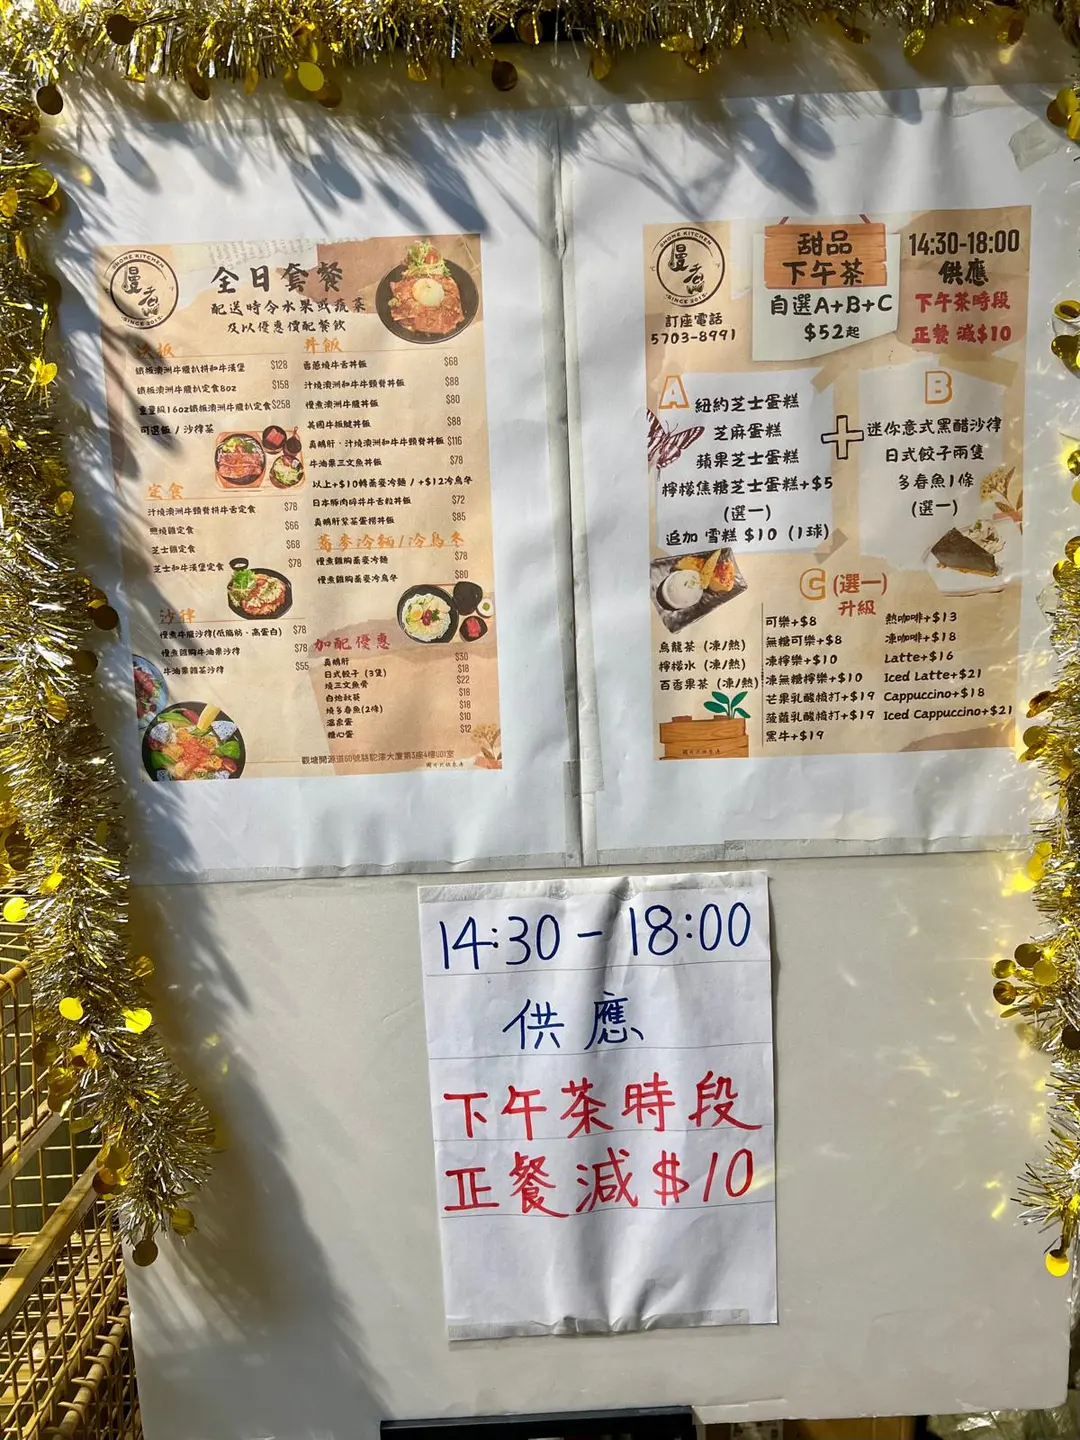 GNOME KITCHEN
慢老
SINCE 2015
全日套餐
配送時令水果或蔬菜
及以優惠價配餐飲
鐵板
鐵板澳洲牛臘扒拼和牛漢堡 $128
鐵板澳洲牛臘扒定食8oz $158
重量級16oz鐵板澳洲牛臘扒定食 $258
可選飯 / 沙律菜
定食
汁燒澳洲牛頸脊拼牛舌定食 $78
照燒雞定食 $66
芝士雞定食 $68
芝士和牛漢堡定食 $78
沙律
慢煮牛臘沙律(低脂肪・高蛋白) $78
慢煮雞胸牛油果沙律 $78
牛油果雜菜沙律 $55
丼飯
香蔥燒牛舌丼飯 $68
汁燒澳洲和牛牛頸脊丼飯 $88
慢煮澳洲牛臘丼飯 $80
英國牛板腱丼飯 $88
真鵝肝・汁燒澳洲和牛牛頸脊丼飯 $116
牛油果三文魚丼飯 $78
以上+$10轉蕎麥冷麵 / +$12冷烏冬
日本豚肉碎丼牛舌粒丼飯 $72
真鵝肝紫菜蛋撈丼飯 $85
蕎麥冷麵/冷烏冬
慢煮雞胸蕎麥冷麵 $78
慢煮雞胸蕎麥冷烏冬 $80
加配優惠
真鵝肝 $30
日式餃子 (3隻) $18
燒三文魚骨 $22
白灼秋葵 $18
燒多春魚(2條) $18
溫泉蛋 $10
糖心蛋 $12
觀塘開源道60號駱駝漆大廈第3座4樓U01室
圖片只供參考
GNOME KITCHEN
慢老
SINCE 2015
訂座電話
5703-8991
甜品
下午茶
自選A+B+C
$52起
14:30-18:00
供應
下午茶時段
正餐 減$10
A
紐約芝士蛋糕
芝麻蛋糕
蘋果芝士蛋糕
檸檬焦糖芝士蛋糕+$5
(選一)
追加 雪糕 $10 (1球)
+
B
迷你意式黑醋沙律
日式餃子兩隻
多春魚1條
(選一)
C (選一)
升級
烏龍茶 (凍/熱)
檸檬水 (凍/熱)
百香果茶 (凍/熱)
可樂+$8
無糖可樂+$8
凍檸樂+$10
凍無糖檸樂+$10
芒果乳酸梳打+$19
菠蘿乳酸梳打+$19
黑牛+$19
熱咖啡+$13
凍咖啡+$18
Latte+$16
Iced Latte+$21
Cappuccino+$18
Iced Cappuccino+$21
圖片只供參考
14:30 - 18:00
供應
下午茶時段
正餐減$10